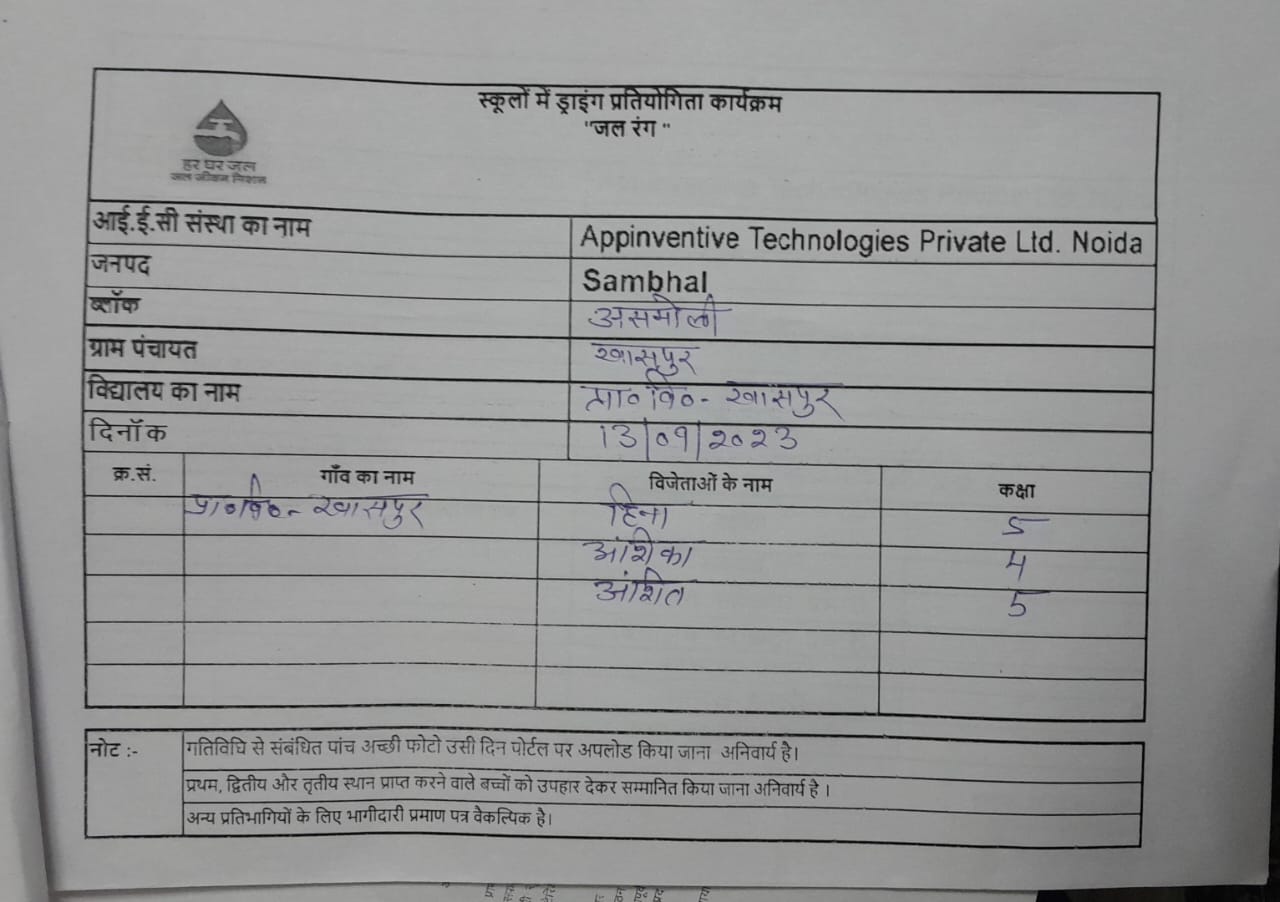 स्कूलों में ड्राइंग प्रतियोगिता कार्यक्रम
"जल रंग "
हर घर जल
जल जीवन मिशन
आई.ई.सी संस्था का नाम Appinventive Technologies Private Ltd. Noida
जनपद Sambhal
ब्लॉक असमोली
ग्राम पंचायत खासपुर
विद्यालय का नाम प्रा० वि० - खासपुर
दिनॉक 13/09/2023
क्र.सं. गाँव का नाम विजेताओं के नाम कक्षा
प्रा० वि० - खासपुर हिना 5
आंशिका 4
अंशित 5
नोट :- गतिविधि से संबंधित पांच अच्छी फोटो उसी दिन पोर्टल पर अपलोड किया जाना अनिवार्य है।
प्रथम, द्वितीय और तृतीय स्थान प्राप्त करने वाले बच्चों को उपहार देकर सम्मानित किया जाना अनिवार्य है ।
अन्य प्रतिभागियों के लिए भागीदारी प्रमाण पत्र वैकल्पिक है।